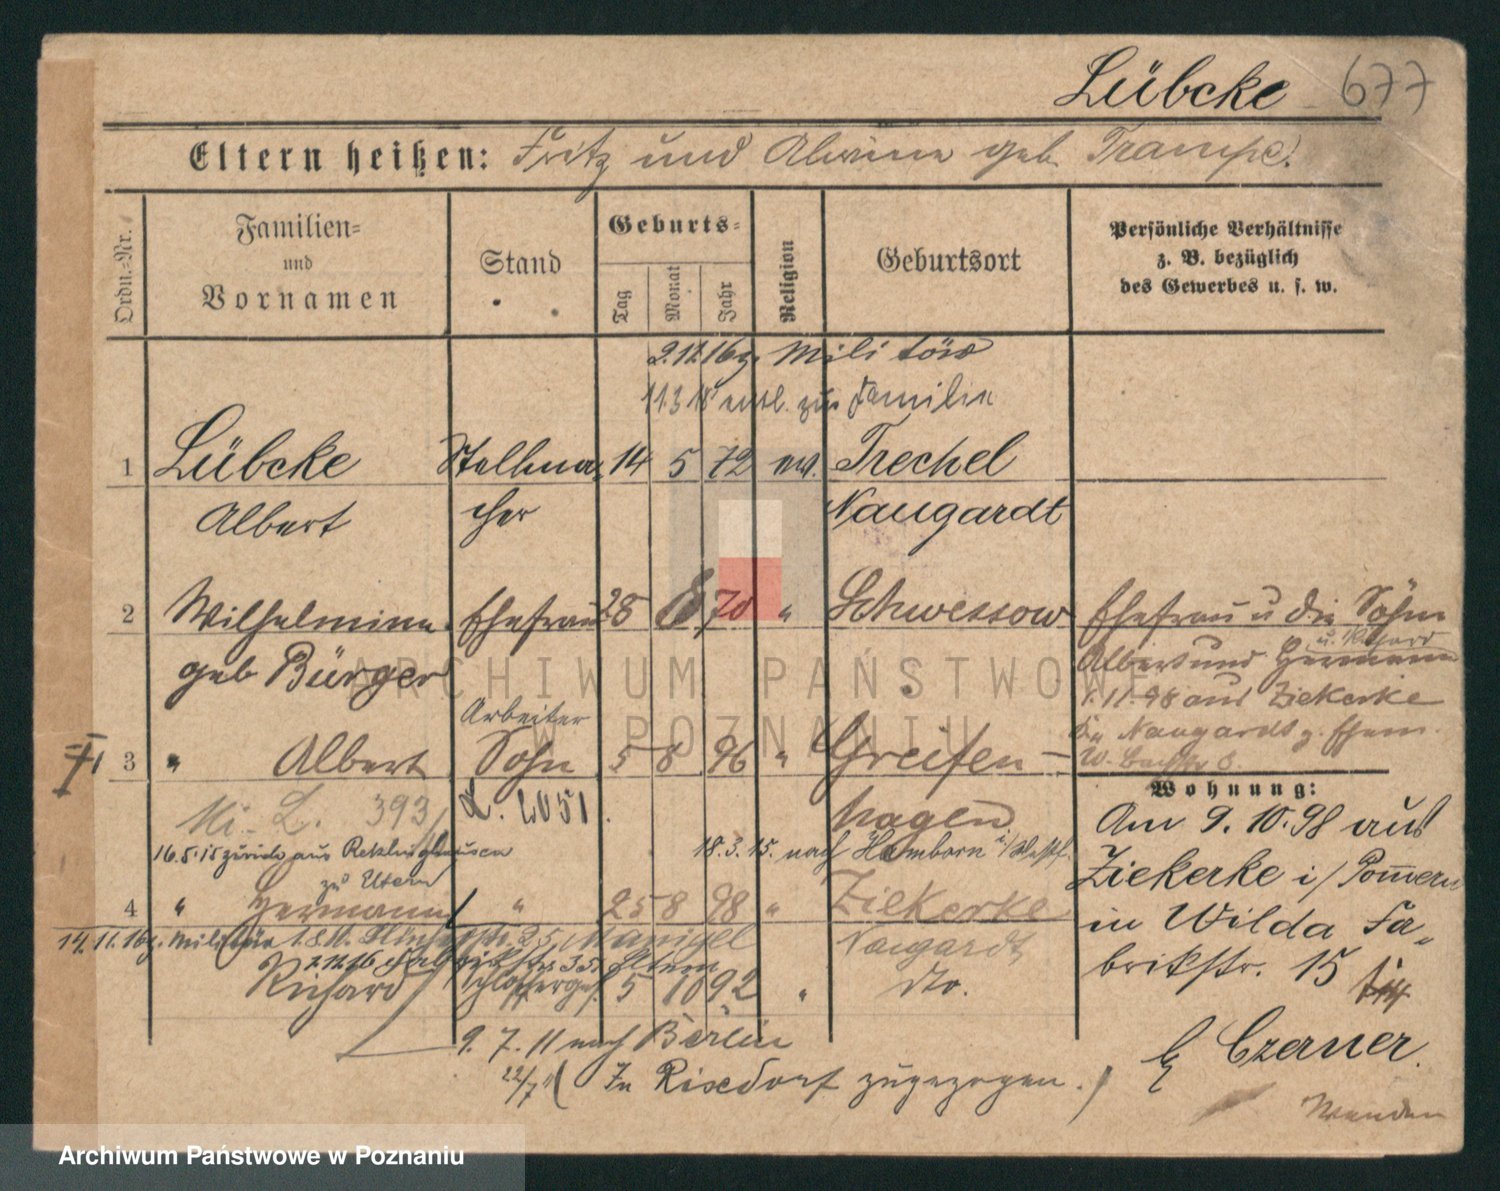 Lübcke 677
Eltern heißen: Fritz und Alwine geb. Trampe.
Ordn.-Nr.
Familien- und Vornamen
Stand
Geburts-
Tag Monat Jahr
Religion
Geburtsort
Persönliche Verhältnisse
z. B. bezüglich
des Gewerbes u. s. w.
2.12.16 z. Militär
11.3.18 entl. zur Familie
1 Lübcke Stellma- 14 5 72 ev. Trechel
Albert cher Naugardt
2 Wilhelmine Ehefrau 28 8 70 " Schwessow
geb Bürger
Ehefrau u die Söhne
u. Richard
Albert und Hermann
1.11.98 aus Ziekerke
Kr. Naugardt z. Ehem.
Arbeiter
3 " Albert Sohn 5 8 96 " Greifen-
hagen
Mi. L. 393 L. 2051.
16.5.15 zurück aus Recklinghausen
zu Eltern
18.3.15. nach Hamborn i/Westf.
4 " Hermann " 25 8 98 " Ziekerke
Naugardt
14.11.16 z. Militär 1.8.11.
2.12.16
Richard Schlosserges. 5 10 92 " dto.
9. 7. 11 nach Berlin
22/7 11 ( In Rixdorf zugezogen. )
Wohnung:
Am 9. 10. 98 aus
Ziekerke i/Pommern
in Wilda Fa-
brikstr. 15
b/ Czerner.
Archiwum Państwowe w Poznaniu
ARCHIWUM PAŃSTWOWE
W POZNANIU